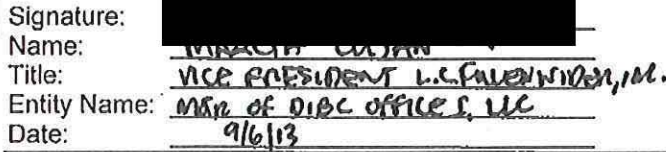 Signature:
Name:
Title: VICE PRESIDENT L.C. FULENWIDER, INC.
Entity Name: MGR OF DIBC OFFICES, LLC
Date: 9/6/13